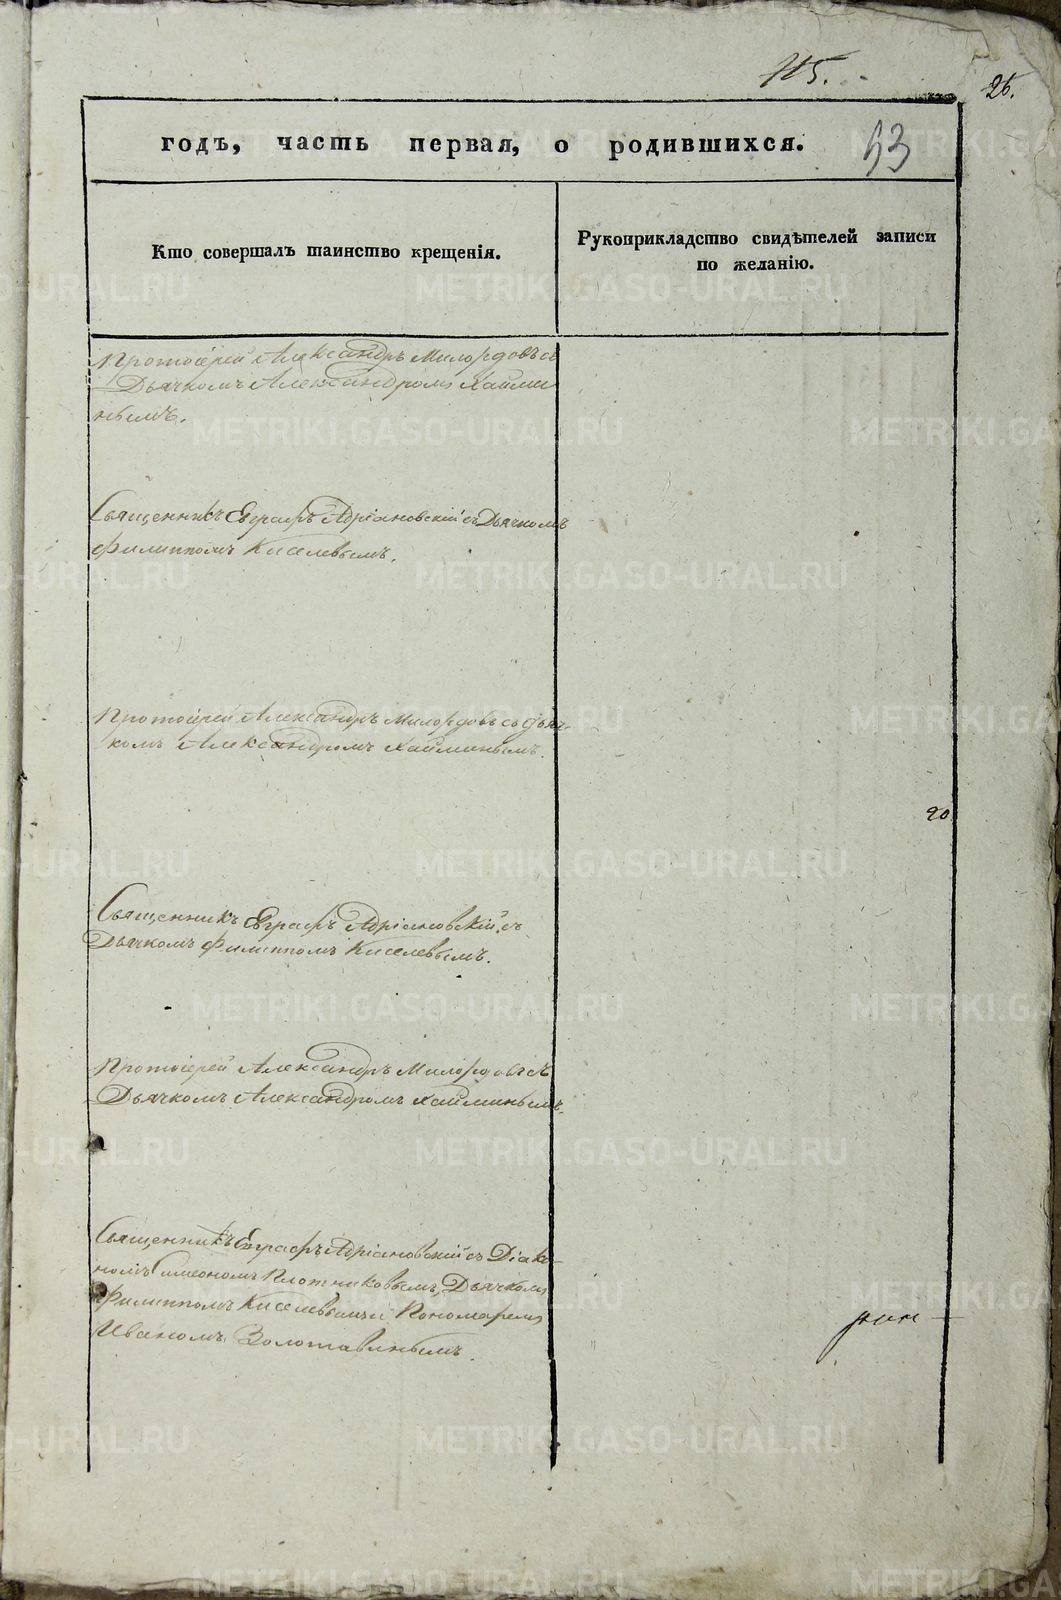 115.
26.
годъ, часть первая, о родившихся.
53
Кто совершалъ таинство крещенія.
Рукоприкладство свидѣтелей записи
по желанію.
Протоіерей Александръ Милордовъ съ
Дьячкомъ Александромъ Хайми
нымъ.
Священникъ Евграфъ Адріановскій съ Дьячкомъ
Филиппомъ Киселевымъ.
Протоіерей Александръ Милордовъ съ дьяч-
комъ Александромъ Хайминымъ.
20
Священникъ Евграфъ Адріановскій съ
Дьячкомъ Филиппомъ Киселевымъ.
Протоіерей Александръ Милордовъ съ
Дьячкомъ Александромъ Хайминымъ.
Священникъ Евграфъ Адріановскій съ Діако-
номъ Симеономъ Плотниковымъ, Дьячкомъ
Филиппомъ Киселевымъ и Пономаремъ
Иваномъ Золотавинымъ.
METRIKI.GASO-URAL.RU